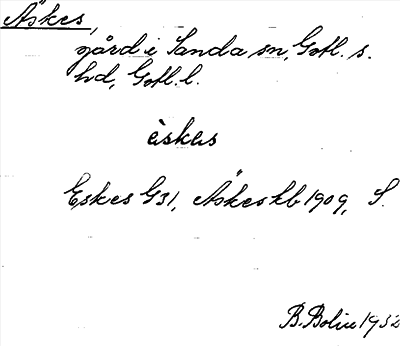 Äskes,
gård i Sanda sn, Gotl. s.
hd, Gotl. l.
èskas
Eskes G31, Äskes kb 1909, S.
B. Bolin 1932